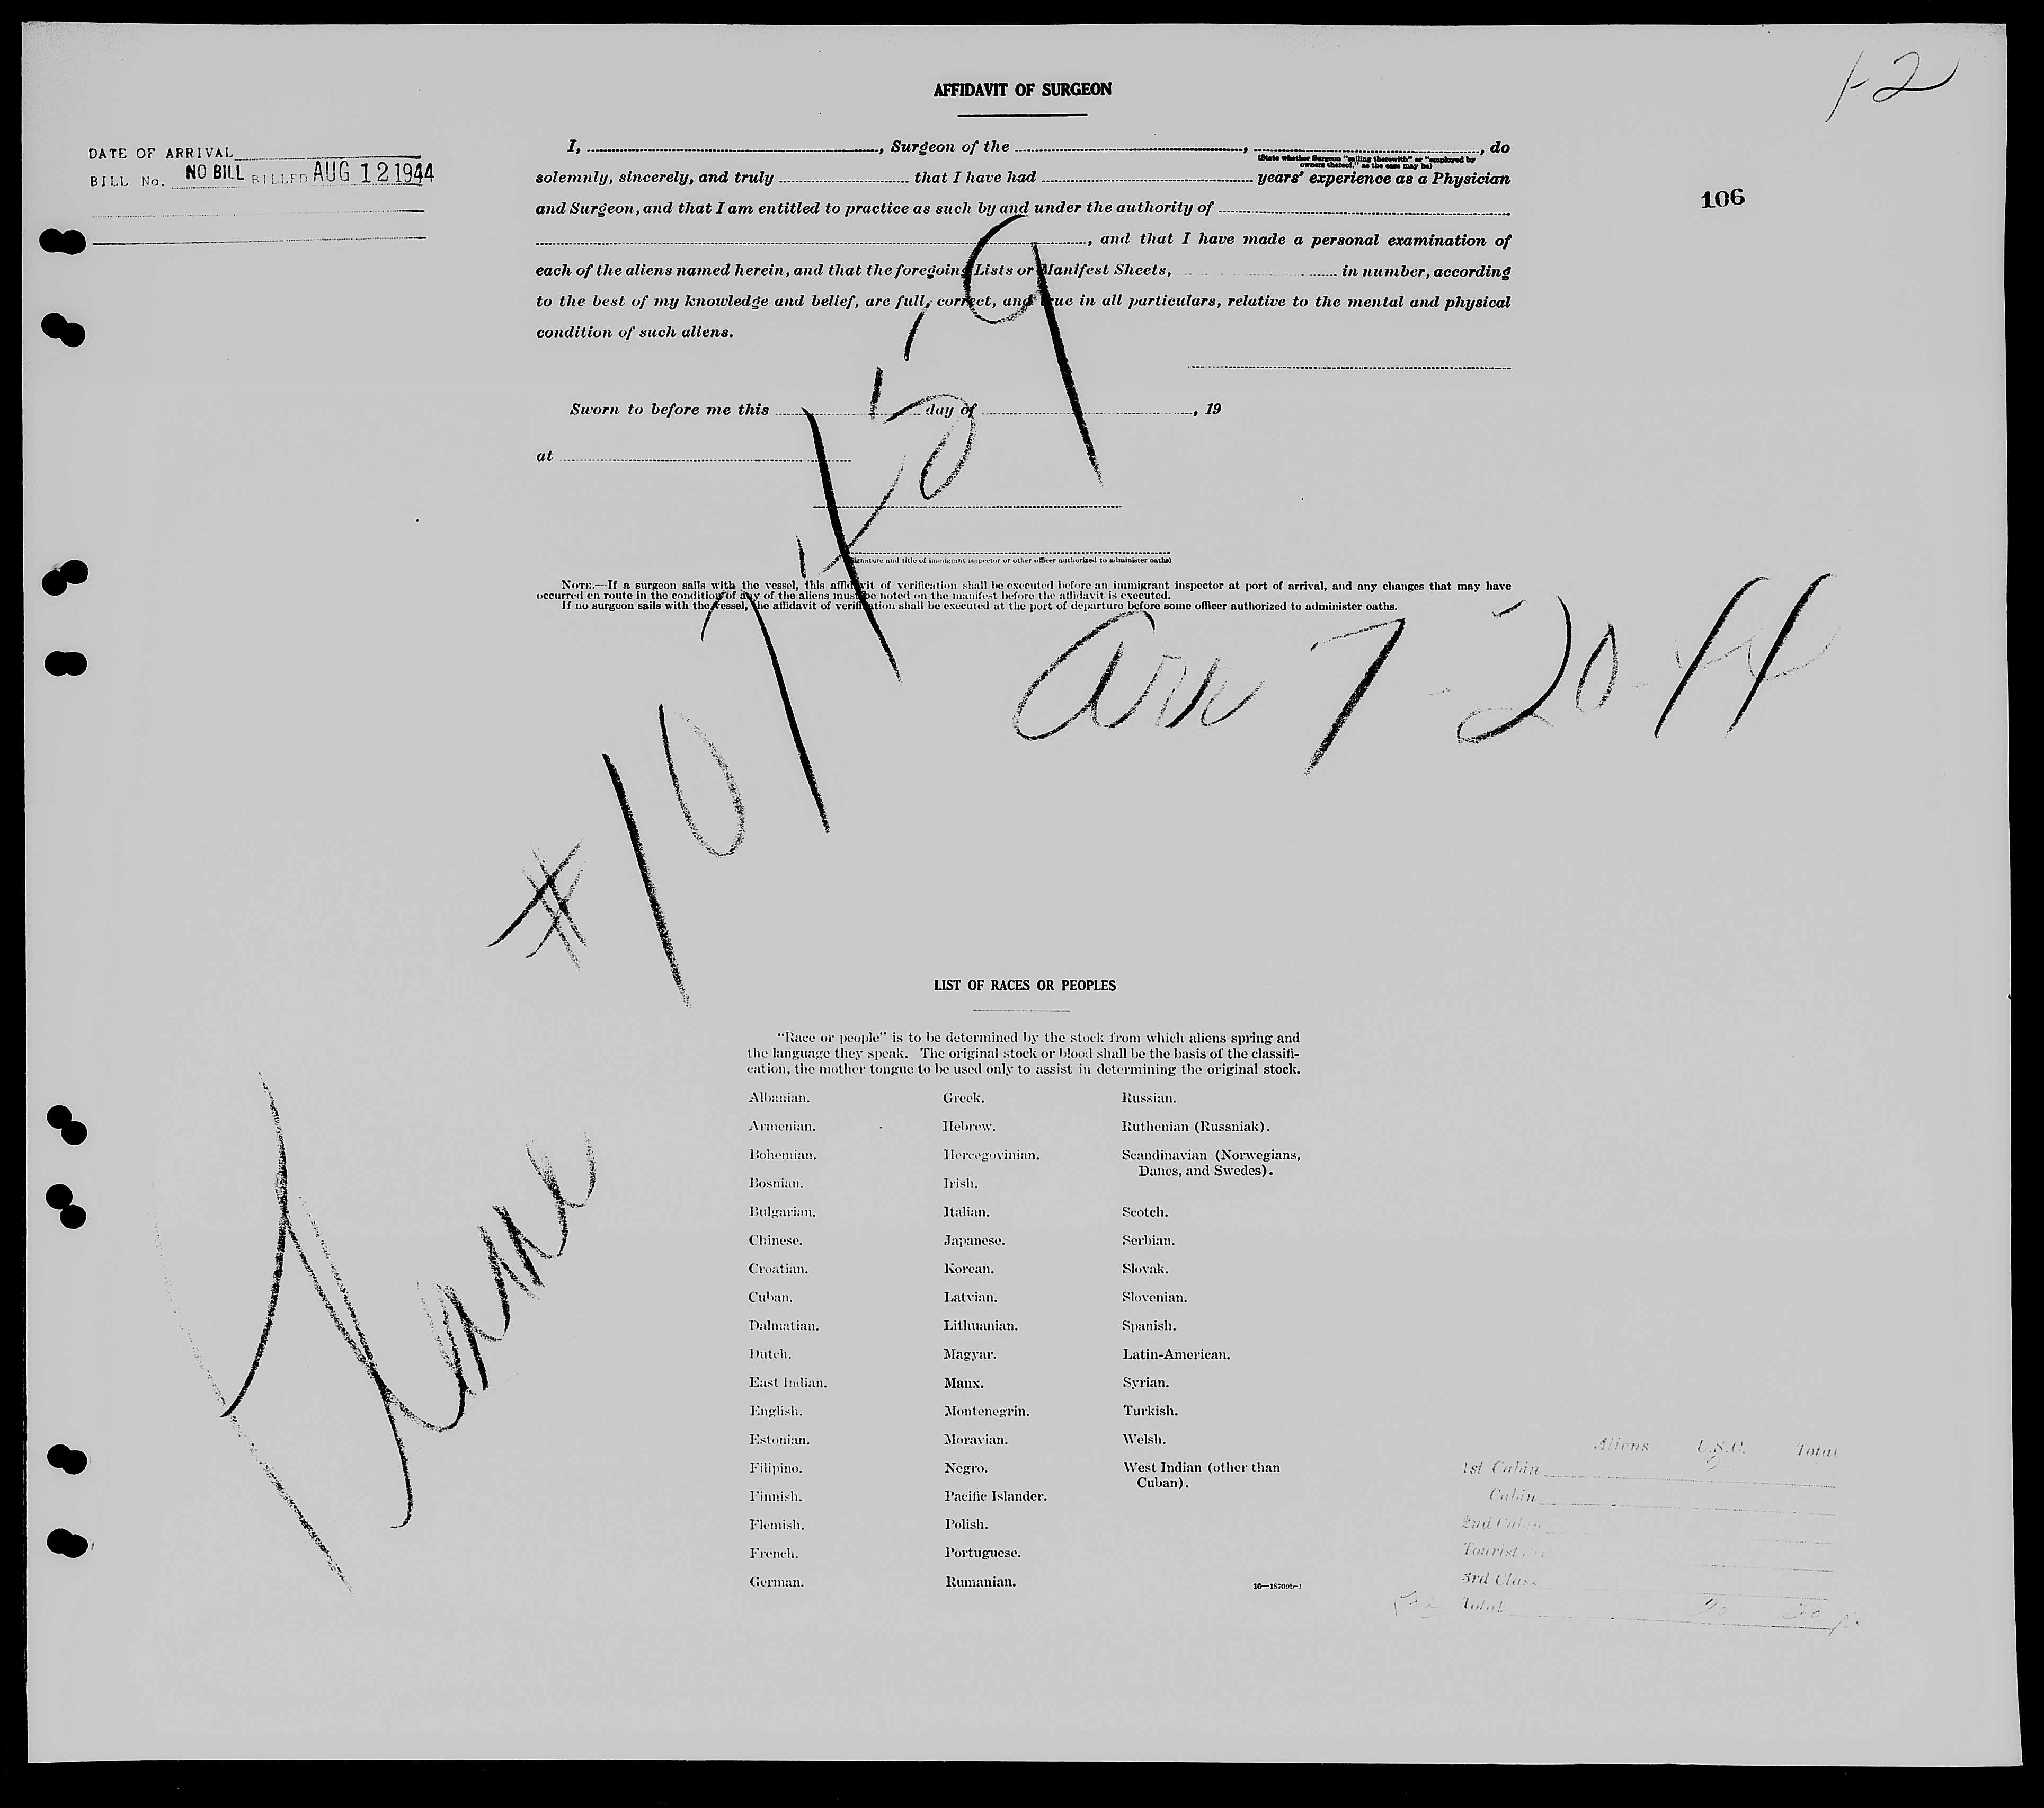 1-2
AFFIDAVIT OF SURGEON
DATE OF ARRIVAL
BILL No. NO BILL BILLED AUG 12 1944
106
I, , Surgeon of the , , do
(State whether Surgeon "sailing therewith" or "employed by
owners thereof," as the case may be)
solemnly, sincerely, and truly that I have had years' experience as a Physician
and Surgeon, and that I am entitled to practice as such by and under the authority of
, and that I have made a personal examination of
each of the aliens named herein, and that the foregoing Lists or Manifest Sheets, in number, according
to the best of my knowledge and belief, are full, correct, and true in all particulars, relative to the mental and physical
condition of such aliens.
Sworn to before me this day of , 19
at
(Signature and title of immigrant inspector or other officer authorized to administer oaths)
NOTE.—If a surgeon sails with the vessel, this affidavit of verification shall be executed before an immigrant inspector at port of arrival, and any changes that may have
occurred en route in the condition of any of the aliens must be noted on the manifest before the affidavit is executed.
If no surgeon sails with the vessel, the affidavit of verification shall be executed at the port of departure before some officer authorized to administer oaths.
arr 7-20-44
#107459
LIST OF RACES OR PEOPLES
"Race or people" is to be determined by the stock from which aliens spring and
the language they speak. The original stock or blood shall be the basis of the classifi-
cation, the mother tongue to be used only to assist in determining the original stock.
Albanian. Greek. Russian.
Armenian. Hebrew. Ruthenian (Russniak).
Bohemian. Hercegovinian. Scandinavian (Norwegians,
Danes, and Swedes).
Bosnian. Irish.
Bulgarian. Italian. Scotch.
Chinese. Japanese. Serbian.
Croatian. Korean. Slovak.
Cuban. Latvian. Slovenian.
Dalmatian. Lithuanian. Spanish.
Dutch. Magyar. Latin-American.
East Indian. Manx. Syrian.
English. Montenegrin. Turkish.
Estonian. Moravian. Welsh.
Filipino. Negro. West Indian (other than
Cuban).
Finnish. Pacific Islander.
Flemish. Polish.
French. Portuguese.
German. Rumanian.
16—18709b-1
Aliens U.S.C. Total
1st Cabin
Cabin
2nd Cabin
Tourist
3rd Class
Total